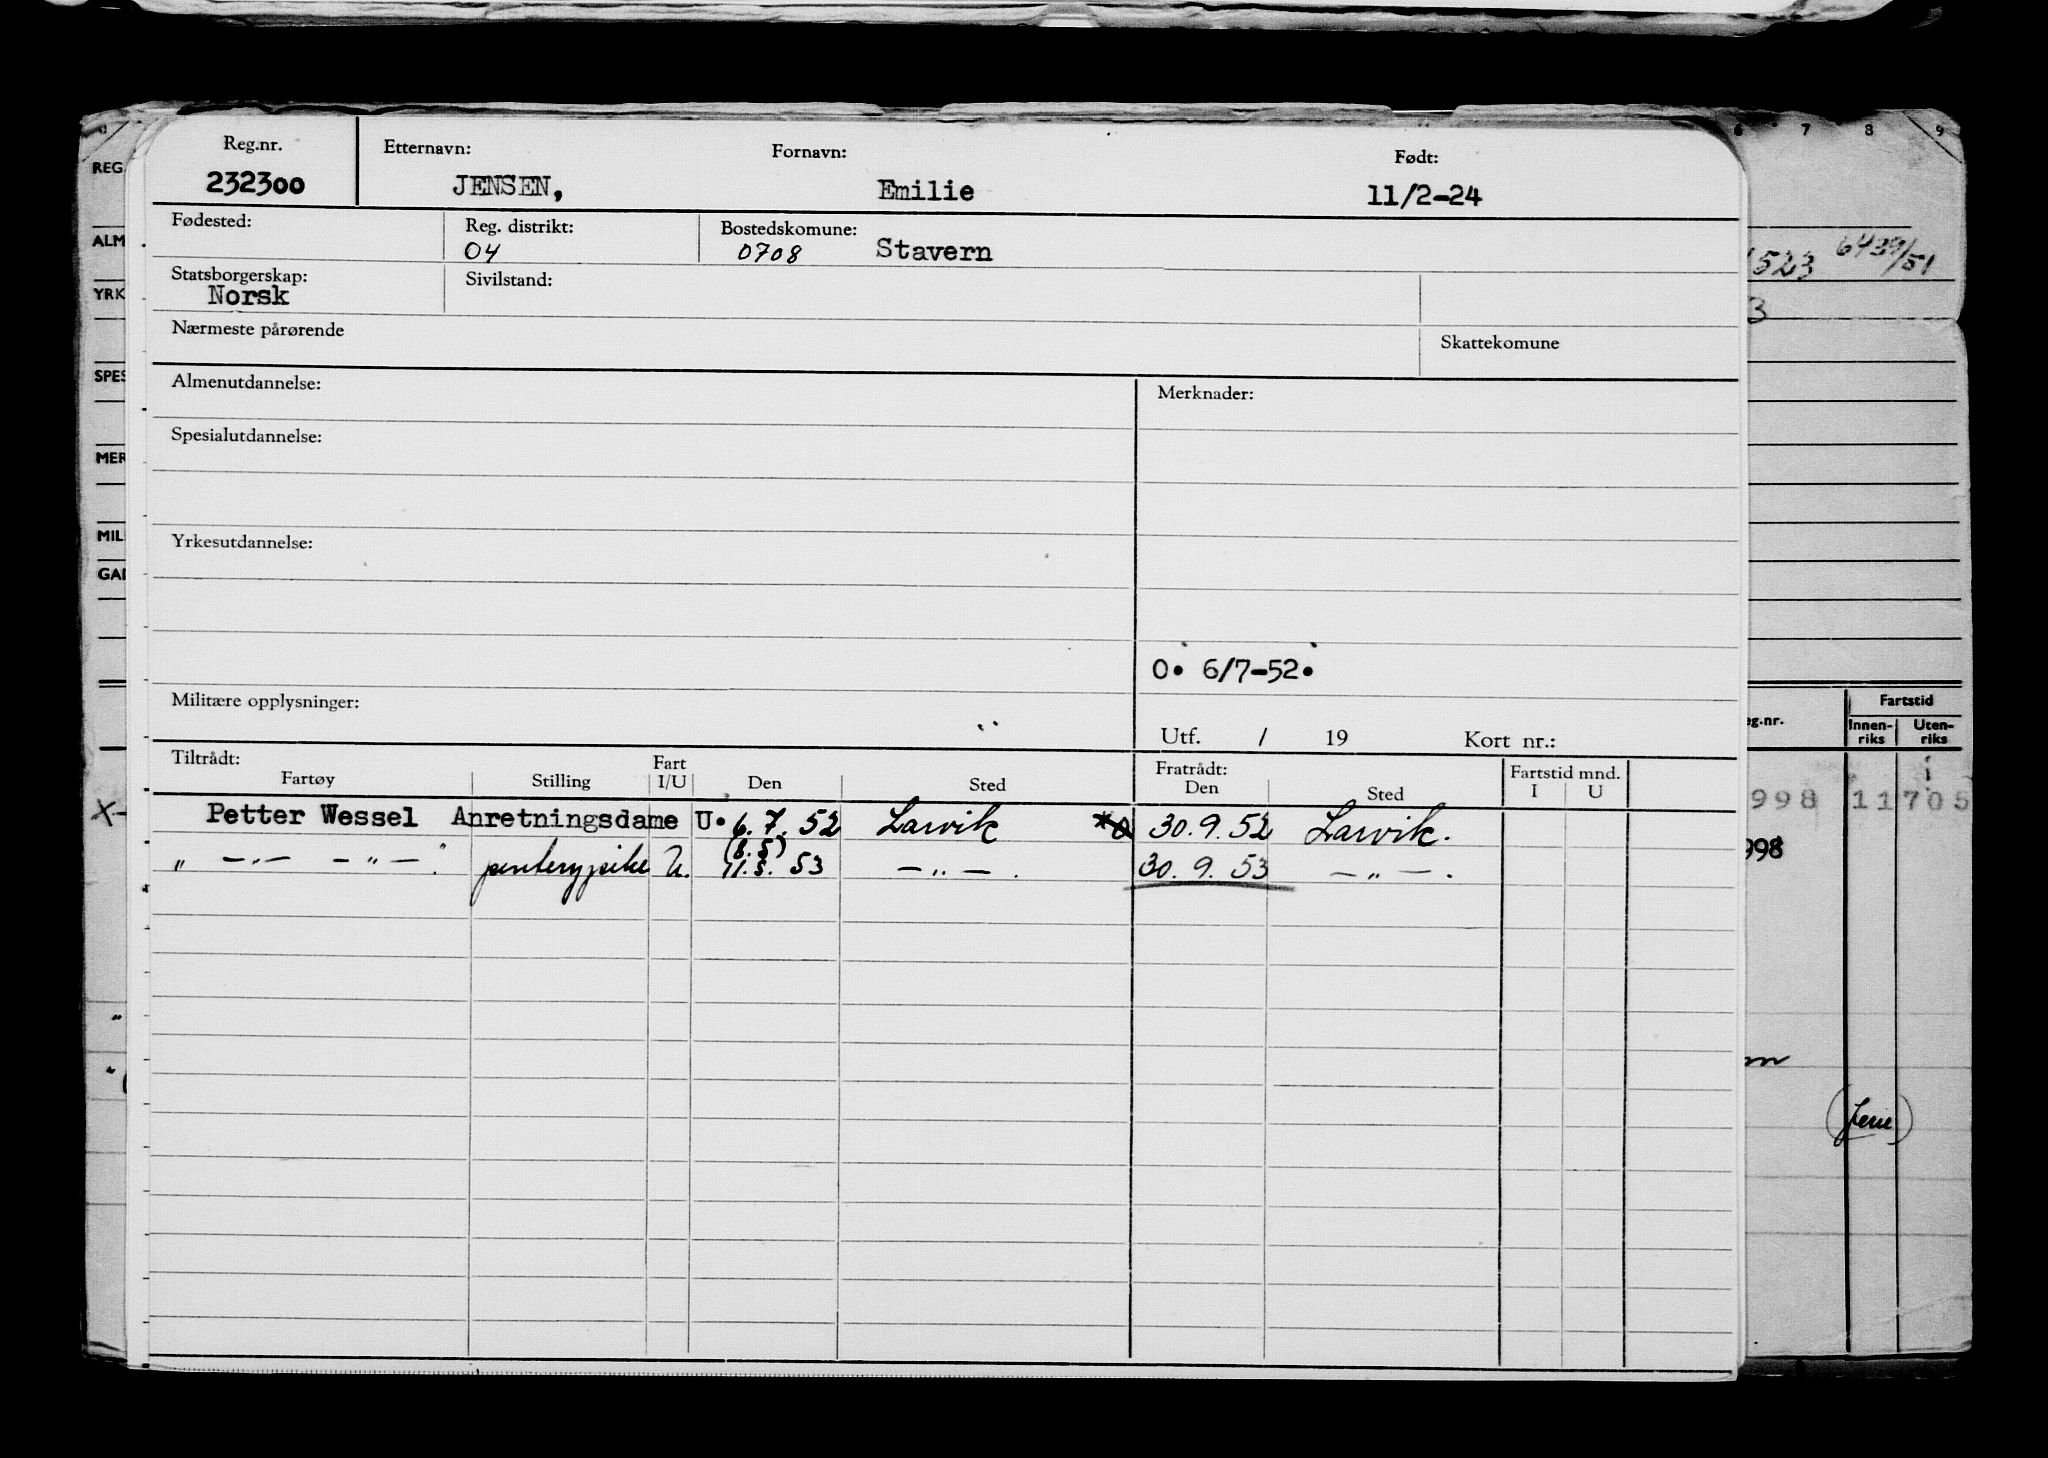 6 7 8 9
Reg.nr. Etternavn: Fornavn: Født:
REG. 232300 JENSEN, Emilie 11/2-24
Fødested: Reg. distrikt: Bostedskomune:
ALM 04 0708 Stavern 523 6439/51
Statsborgerskap: Sivilstand:
YRK Norsk 3
Nærmeste pårørende Skattekomune
SPES
Almenutdannelse: Merknader:
Spesialutdannelse:
MER
MIL
Yrkesutdannelse:
GAI
O. 6/7-52.
Militære opplysninger: Fartstid
eg.nr. Innen- Uten-
riks riks
Utf. / 19 Kort nr.:
Tiltrådt: Fart Fratrådt: Fartstid mnd.
Fartøy Stilling I/U Den Sted Den Sted I U
X- Petter Wessel Anretningsdame U. 6.7.52 Larvik *o 30.9.52 Larvik. 998 11705
(8.5)
" -"- -"- . U. 11.5.53 -"- . 30.9.53 -"- . 998
(ferie)